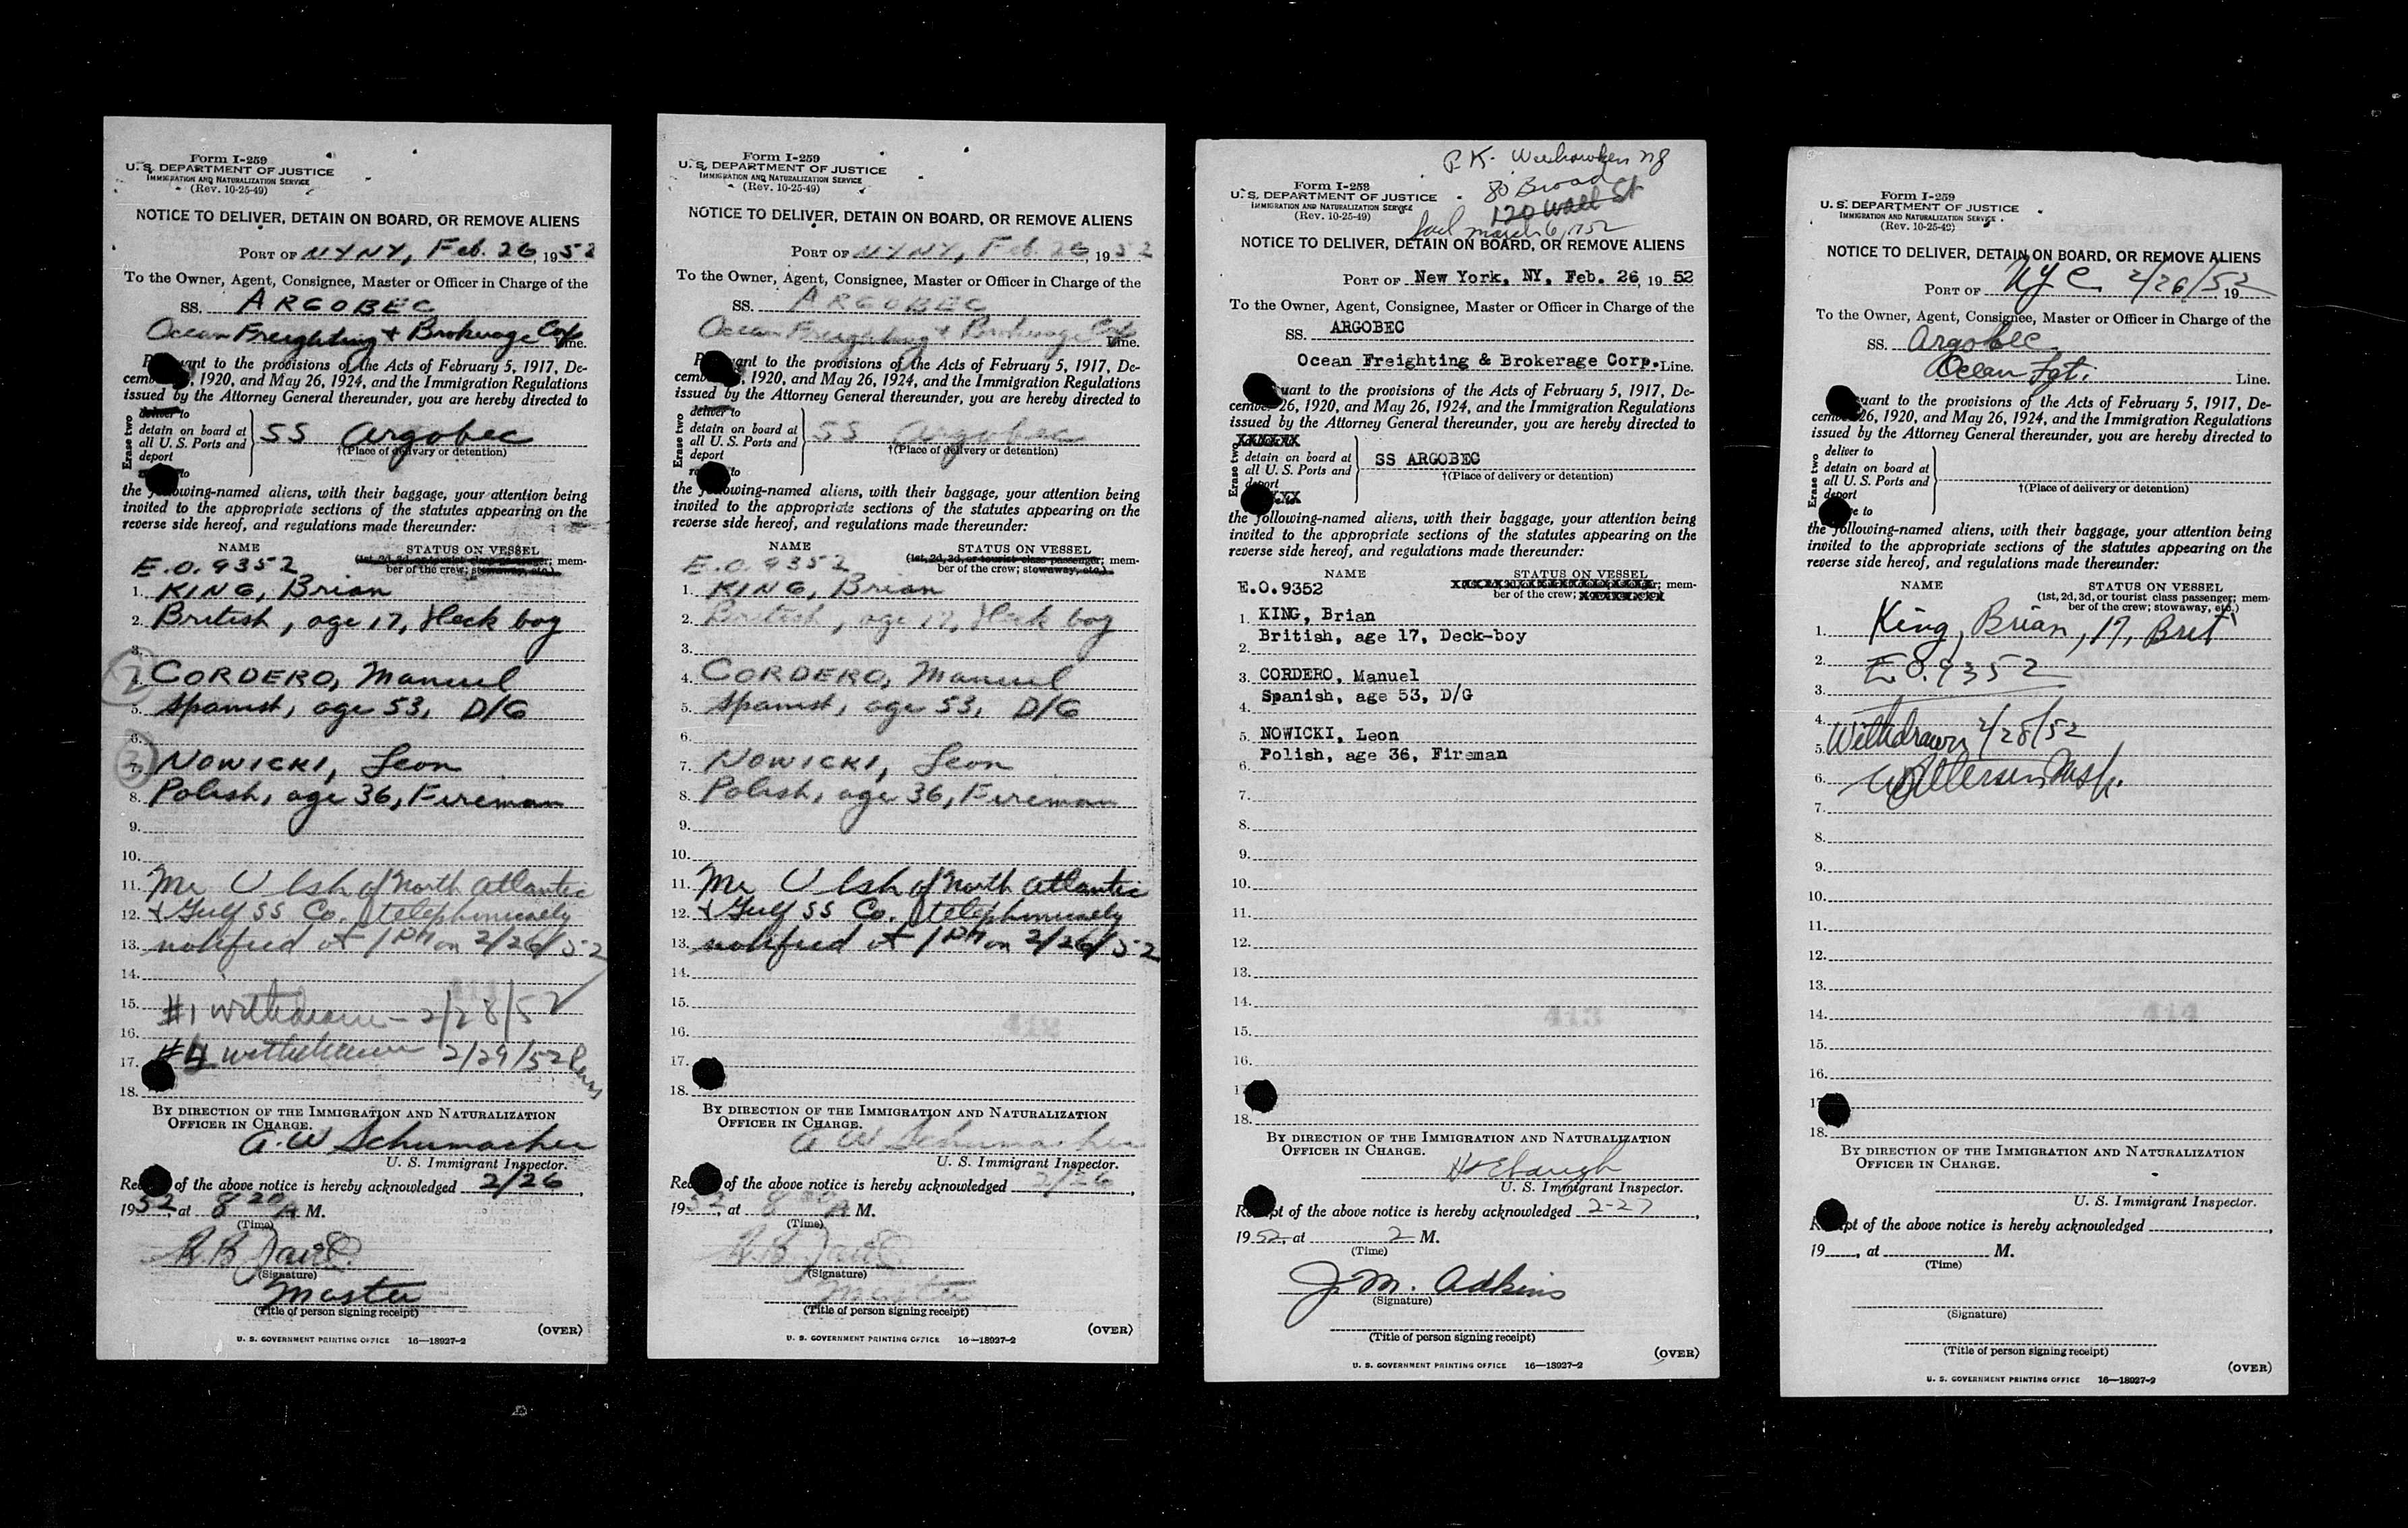 Form I-259
U. S. DEPARTMENT OF JUSTICE
IMMIGRATION AND NATURALIZATION SERVICE
(Rev. 10-25-49)
NOTICE TO DELIVER, DETAIN ON BOARD, OR REMOVE ALIENS
PORT OF NYNY, Feb. 26, 1952
To the Owner, Agent, Consignee, Master or Officer in Charge of the
SS. ARGOBEC
Ocean Freighting & Brokerage Corp Line.
Pursuant to the provisions of the Acts of February 5, 1917, De-
cember 26, 1920, and May 26, 1924, and the Immigration Regulations
issued by the Attorney General thereunder, you are hereby directed to
Erase two
deliver to
detain on board at
all U. S. Ports and
deport
to
SS Argobec
†(Place of delivery or detention)
the following-named aliens, with their baggage, your attention being
invited to the appropriate sections of the statutes appearing on the
reverse side hereof, and regulations made thereunder:
NAME STATUS ON VESSEL
(1st, 2d, 3d, or tourist class passenger; mem-
ber of the crew; stowaway, etc.)
E.O. 9352
1. KING, Brian
2. British, age 17, Deck boy
3.
2 CORDERO, Manuel
5. Spanish, age 53, D/G
6.
3 NOWICKI, Leon
8. Polish, age 36, Fireman
9.
10.
11. Mr Ulsh of North Atlantic
12. & Gulf SS Co. telephonically
13. notified at 1 PM on 2/26/52
14.
15. #1 withdrawn - 2/28/52
16.
17. withdrawn 2/29/52
18.
BY DIRECTION OF THE IMMIGRATION AND NATURALIZATION
OFFICER IN CHARGE.
A. W Schumacher
U. S. Immigrant Inspector.
Receipt of the above notice is hereby acknowledged 2/26,
1952, at 8 20 A M.
(Time)
(Signature)
Master
(Title of person signing receipt)
(OVER)
U. S. GOVERNMENT PRINTING OFFICE 16—18927-2
Form I-259
U. S. DEPARTMENT OF JUSTICE
IMMIGRATION AND NATURALIZATION SERVICE
(Rev. 10-25-49)
NOTICE TO DELIVER, DETAIN ON BOARD, OR REMOVE ALIENS
PORT OF NYNY, Feb. 26, 1952
To the Owner, Agent, Consignee, Master or Officer in Charge of the
SS. ARGOBEC
Ocean Freighting & Brokerage Corp Line.
Pursuant to the provisions of the Acts of February 5, 1917, De-
cember 26, 1920, and May 26, 1924, and the Immigration Regulations
issued by the Attorney General thereunder, you are hereby directed to
Erase two
deliver to
detain on board at
all U. S. Ports and
deport
to
SS Argobec
†(Place of delivery or detention)
the following-named aliens, with their baggage, your attention being
invited to the appropriate sections of the statutes appearing on the
reverse side hereof, and regulations made thereunder:
NAME STATUS ON VESSEL
(1st, 2d, 3d, or tourist class passenger; mem-
ber of the crew; stowaway, etc.)
E.O. 9352
1. KING, Brian
2. British, age 17, Deck boy
3.
4. CORDERO, Manuel
5. Spanish, age 53, D/G
6.
7. NOWICKI, Leon
8. Polish, age 36, Fireman
9.
10.
11. Mr Ulsh of North Atlantic
12. & Gulf SS Co. telephonically
13. notified at 1 PM on 2/26/52
14.
15.
412
16.
17.
18.
BY DIRECTION OF THE IMMIGRATION AND NATURALIZATION
OFFICER IN CHARGE.
A W Schumacher
U. S. Immigrant Inspector.
Receipt of the above notice is hereby acknowledged 2/26,
1952, at 8 20 A M.
(Time)
(Signature)
Master
(Title of person signing receipt)
(OVER)
U. S. GOVERNMENT PRINTING OFFICE 16—18927-2
P.K. Weehawken NJ
80 Broad
120 Wall St
Sail March 6, 1952
Form I-259
U. S. DEPARTMENT OF JUSTICE
IMMIGRATION AND NATURALIZATION SERVICE
(Rev. 10-25-49)
NOTICE TO DELIVER, DETAIN ON BOARD, OR REMOVE ALIENS
PORT OF New York, NY, Feb. 26, 1952
To the Owner, Agent, Consignee, Master or Officer in Charge of the
SS. ARGOBEC
Ocean Freighting & Brokerage Corp. Line.
Pursuant to the provisions of the Acts of February 5, 1917, De-
cember 26, 1920, and May 26, 1924, and the Immigration Regulations
issued by the Attorney General thereunder, you are hereby directed to
Erase two
XXXXXX
detain on board at
all U. S. Ports and
deport
XXX
SS ARGOBEC
†(Place of delivery or detention)
the following-named aliens, with their baggage, your attention being
invited to the appropriate sections of the statutes appearing on the
reverse side hereof, and regulations made thereunder:
NAME STATUS ON VESSEL
mem-
E.O.9352 ber of the crew;
1. KING, Brian
British, age 17, Deck-boy
2.
3. CORDERO, Manuel
Spanish, age 53, D/G
4.
5. NOWICKI, Leon
Polish, age 36, Fireman
6.
7.
8.
9.
10.
11.
12.
13.
14.
413
15.
16.
17.
18.
BY DIRECTION OF THE IMMIGRATION AND NATURALIZATION
OFFICER IN CHARGE.
U. S. Immigrant Inspector.
Receipt of the above notice is hereby acknowledged 2-27,
1952, at 2 M.
(Time)
J. M. Adkins
(Signature)
(Title of person signing receipt)
(OVER)
U. S. GOVERNMENT PRINTING OFFICE 16—18927-2
Form I-259
U. S. DEPARTMENT OF JUSTICE
IMMIGRATION AND NATURALIZATION SERVICE
(Rev. 10-25-49)
NOTICE TO DELIVER, DETAIN ON BOARD, OR REMOVE ALIENS
PORT OF NYC 2/26/52 19
To the Owner, Agent, Consignee, Master or Officer in Charge of the
SS. Argobec
Ocean Fgt. Line.
Pursuant to the provisions of the Acts of February 5, 1917, De-
cember 26, 1920, and May 26, 1924, and the Immigration Regulations
issued by the Attorney General thereunder, you are hereby directed to
Erase two
deliver to
detain on board at
all U. S. Ports and
deport
to
†(Place of delivery or detention)
the following-named aliens, with their baggage, your attention being
invited to the appropriate sections of the statutes appearing on the
reverse side hereof, and regulations made thereunder:
NAME STATUS ON VESSEL
(1st, 2d, 3d, or tourist class passenger; mem-
ber of the crew; stowaway, etc.)
1. King, Brian, 17, Brit
2. E.O. 9352
3.
4.
5. Withdrawn 2/28/52
6. Insp.
7.
8.
9.
10.
11.
12.
13.
14. 414
15.
16.
17.
18.
BY DIRECTION OF THE IMMIGRATION AND NATURALIZATION
OFFICER IN CHARGE.
U. S. Immigrant Inspector.
Receipt of the above notice is hereby acknowledged
19, at M.
(Time)
(Signature)
(Title of person signing receipt)
(OVER)
U. S. GOVERNMENT PRINTING OFFICE 16—18927-2